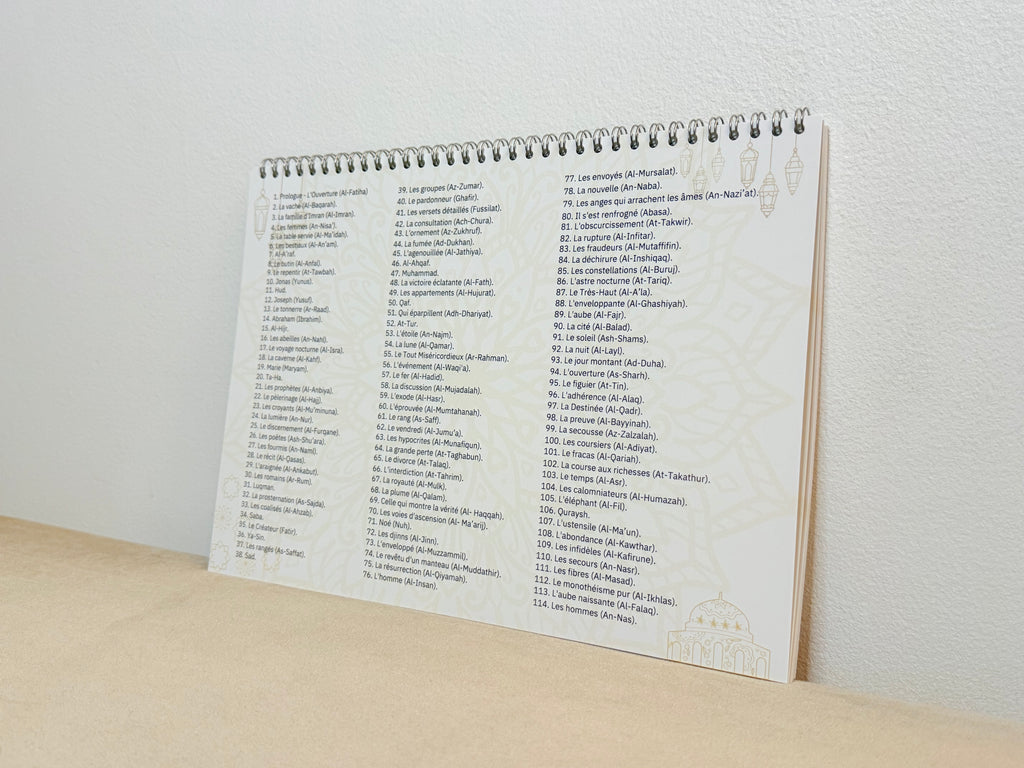 1. Prologue - L'Ouverture (Al-Fatiha)
2. La vache (Al-Baqarah).
3. La famille d'Imran (Al-Imran).
4. Les femmes (An-Nisa').
5. La table servie (Al-Ma'idah).
6. Les bestiaux (Al-An'am).
7. Al-A'raf.
8. Le butin (Al-Anfal).
9. Le repentir (At-Tawbah).
10. Jonas (Yunus).
11. Hud.
12. Joseph (Yusuf).
13. Le tonnerre (Ar-Raad).
14. Abraham (Ibrahim).
15. Al-Hijr.
16. Les abeilles (An-Nahl).
17. Le voyage nocturne (Al-Isra).
18. La caverne (Al-Kahf).
19. Marie (Maryam).
20. Ta-Ha.
21. Les prophètes (Al-Anbiya).
22. Le pèlerinage (Al-Hajj).
23. Les croyants (Al-Mu'minuna).
24. La lumière (An-Nur).
25. Le discernement (Al-Furqane).
26. Les poètes (Ash-Shu'ara).
27. Les fourmis (An-Naml).
28. Le récit (Al-Qasas).
29. L'araignée (Al-Ankabut).
30. Les romains (Ar-Rum).
31. Luqman.
32. La prosternation (As-Sajda).
33. Les coalisés (Al-Ahzab).
34. Saba.
35. Le Créateur (Fatir).
36. Ya-Sin.
37. Les rangés (As-Saffat).
38. Sad.
39. Les groupes (Az-Zumar).
40. Le pardonneur (Ghafir).
41. Les versets détaillés (Fussilat).
42. La consultation (Ach-Chura).
43. L'ornement (Az-Zukhruf).
44. La fumée (Ad-Dukhan).
45. L'agenouillée (Al-Jathiya).
46. Al-Ahqaf.
47. Muhammad.
48. La victoire éclatante (Al-Fath).
49. Les appartements (Al-Hujurat).
50. Qaf.
51. Qui éparpillent (Adh-Dhariyat).
52. At-Tur.
53. L'étoile (An-Najm).
54. La lune (Al-Qamar).
55. Le Tout Miséricordieux (Ar-Rahman).
56. L'événement (Al-Waqi'a).
57. Le fer (Al-Hadid).
58. La discussion (Al-Mujadalah).
59. L'exode (Al-Hasr).
60. L'éprouvée (Al-Mumtahanah).
61. Le rang (As-Saff).
62. Le vendredi (Al-Jumu'a).
63. Les hypocrites (Al-Munafiqun).
64. La grande perte (At-Taghabun).
65. Le divorce (At-Talaq).
66. L'interdiction (At-Tahrim).
67. La royauté (Al-Mulk).
68. La plume (Al-Qalam).
69. Celle qui montre la vérité (Al- Haqqah).
70. Les voies d'ascension (Al- Ma'arij).
71. Noé (Nuh).
72. Les djinns (Al-Jinn).
73. L'enveloppé (Al-Muzzammil).
74. Le revêtu d'un manteau (Al-Muddathir).
75. La résurrection (Al-Qiyamah).
76. L'homme (Al-Insan).
77. Les envoyés (Al-Mursalat).
78. La nouvelle (An-Naba).
79. Les anges qui arrachent les âmes (An-Nazi'at).
80. Il s'est renfrogné (Abasa).
81. L'obscurcissement (At-Takwir).
82. La rupture (Al-Infitar).
83. Les fraudeurs (Al-Mutaffifin).
84. La déchirure (Al-Inshiqaq).
85. Les constellations (Al-Buruj).
86. L'astre nocturne (At-Tariq).
87. Le Très-Haut (Al-A'la).
88. L'enveloppante (Al-Ghashiyah).
89. L'aube (Al-Fajr).
90. La cité (Al-Balad).
91. Le soleil (Ash-Shams).
92. La nuit (Al-Layl).
93. Le jour montant (Ad-Duha).
94. L'ouverture (As-Sharh).
95. Le figuier (At-Tin).
96. L'adhérence (Al-Alaq).
97. La Destinée (Al-Qadr).
98. La preuve (Al-Bayyinah).
99. La secousse (Az-Zalzalah).
100. Les coursiers (Al-Adiyat).
101. Le fracas (Al-Qariah).
102. La course aux richesses (At-Takathur).
103. Le temps (Al-Asr).
104. Les calomniateurs (Al-Humazah).
105. L'éléphant (Al-Fil).
106. Quraysh.
107. L'ustensile (Al-Ma'un).
108. L'abondance (Al-Kawthar).
109. Les infidèles (Al-Kafirune).
110. Les secours (An-Nasr).
111. Les fibres (Al-Masad).
112. Le monothéisme pur (Al-Ikhlas).
113. L'aube naissante (Al-Falaq).
114. Les hommes (An-Nas).